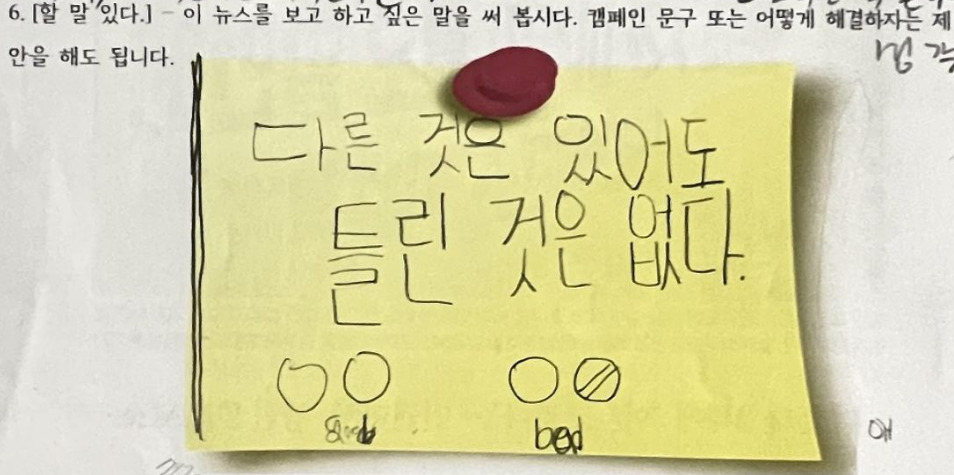 6. [할 말 있다.] - 이 뉴스를 보고 하고 싶은 말을 써 봅시다. 캠페인 문구 또는 어떻게 해결하자는 제
안을 해도 됩니다.
다른 것은 있어도
틀린 것은 없다.
bed
애